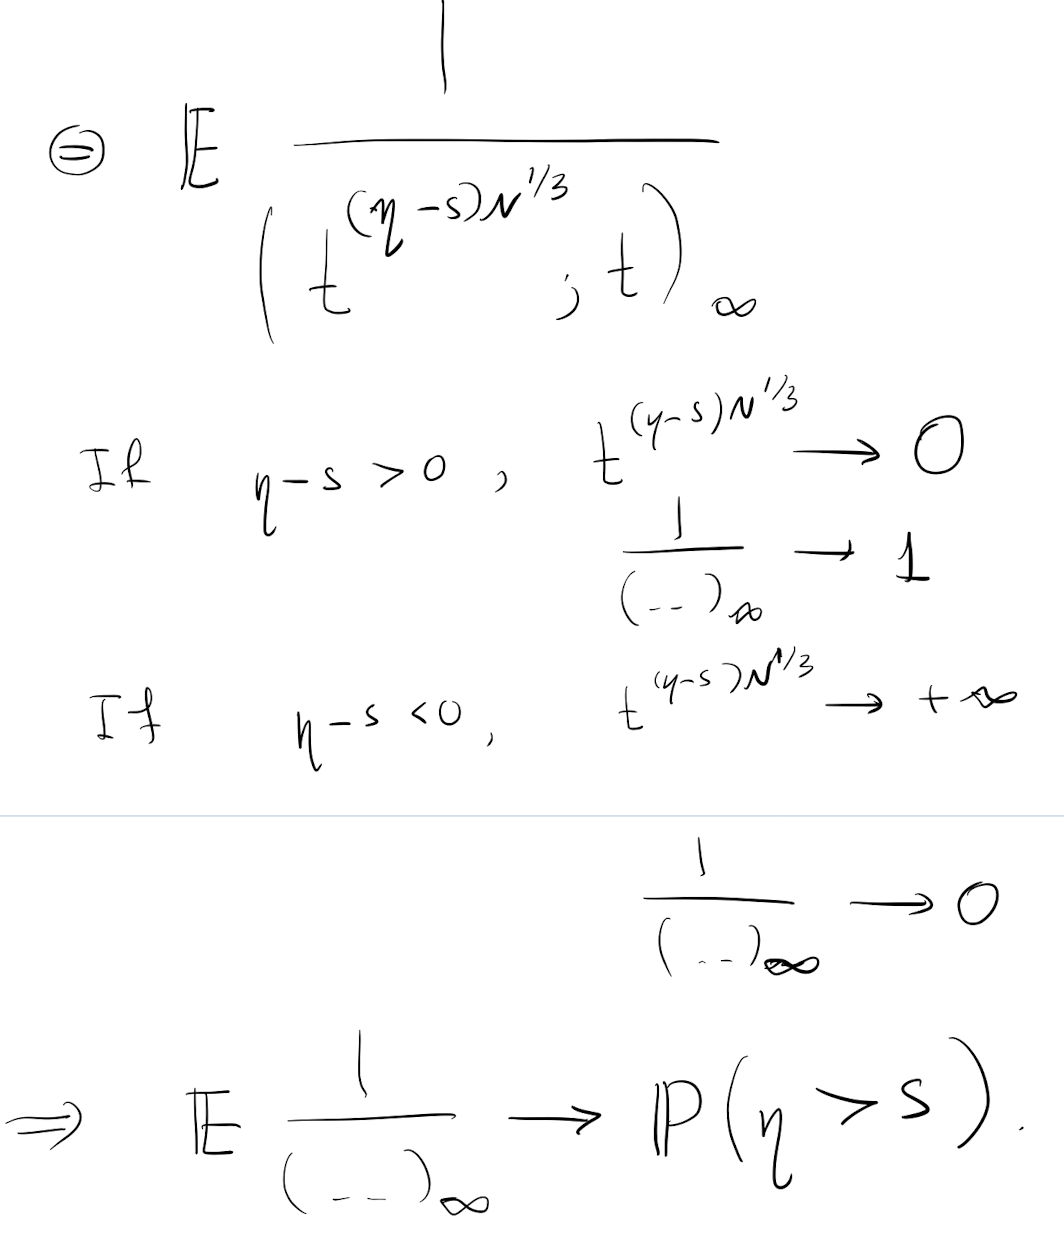 ⊜ 𝔼 1 / (t^{(η-s)N^{1/3}} ; t)_∞
If η-s > 0 , t^{(η-s)N^{1/3}} → 0
1 / (--)_∞ → 1
If η-s < 0 , t^{(η-s)N^{1/3}} → +∞
1 / (--)_∞ → 0
⇒ 𝔼 1 / (--)_∞ → ℙ(η > s).